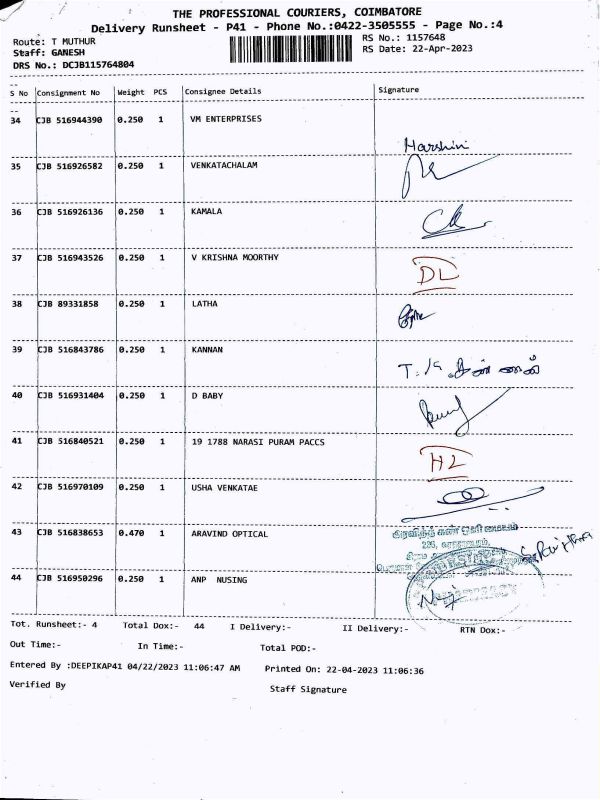 THE PROFESSIONAL COURIERS, COIMBATORE
Delivery Runsheet - P41 - Phone No.:0422-3505555 - Page No.:4
Route: T MUTHUR RS No.: 1157648
Staff: GANESH RS Date: 22-Apr-2023
DRS No.: DCJB115764804
S No Consignment No Weight PCS Consignee Details Signature
34 CJB 516944390 0.250 1 VM ENTERPRISES
Harshini
35 CJB 516926582 0.250 1 VENKATACHALAM
36 CJB 516926136 0.250 1 KAMALA
37 CJB 516943526 0.250 1 V KRISHNA MOORTHY
DL
38 CJB 89331858 0.250 1 LATHA
39 CJB 516843786 0.250 1 KANNAN
40 CJB 516931404 0.250 1 D BABY
41 CJB 516840521 0.250 1 19 1788 NARASI PURAM PACCS
H2
42 CJB 516970109 0.250 1 USHA VENKATAE
43 CJB 516838653 0.470 1 ARAVIND OPTICAL
அரவிந்த் கண் ஒளி மையம்
44 CJB 516950296 0.250 1 ANP NUSING
Tot. Runsheet:- 4 Total Dox:- 44 I Delivery:- II Delivery:- RTN Dox:-
Out Time:- In Time:- Total POD:-
Entered By :DEEPIKAP41 04/22/2023 11:06:47 AM Printed On: 22-04-2023 11:06:36
Verified By Staff Signature